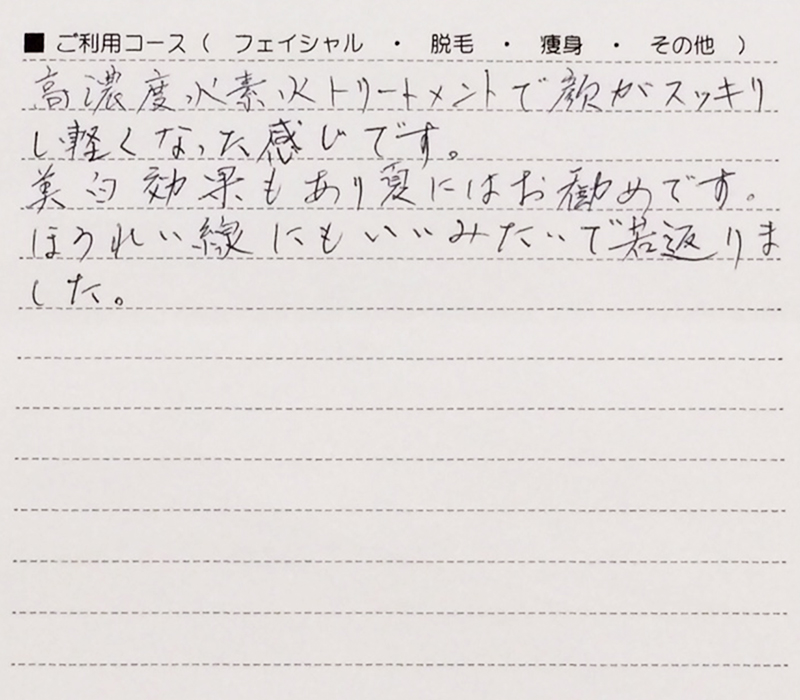 ■ ご利用コース（ フェイシャル ・ 脱毛 ・ 痩身 ・ その他 ）
高濃度水素水トリートメントで顔がスッキリ
し軽くなった感じです。
美白効果もあり夏にはお勧めです。
ほうれい線にもいいみたいで若返りま
した。